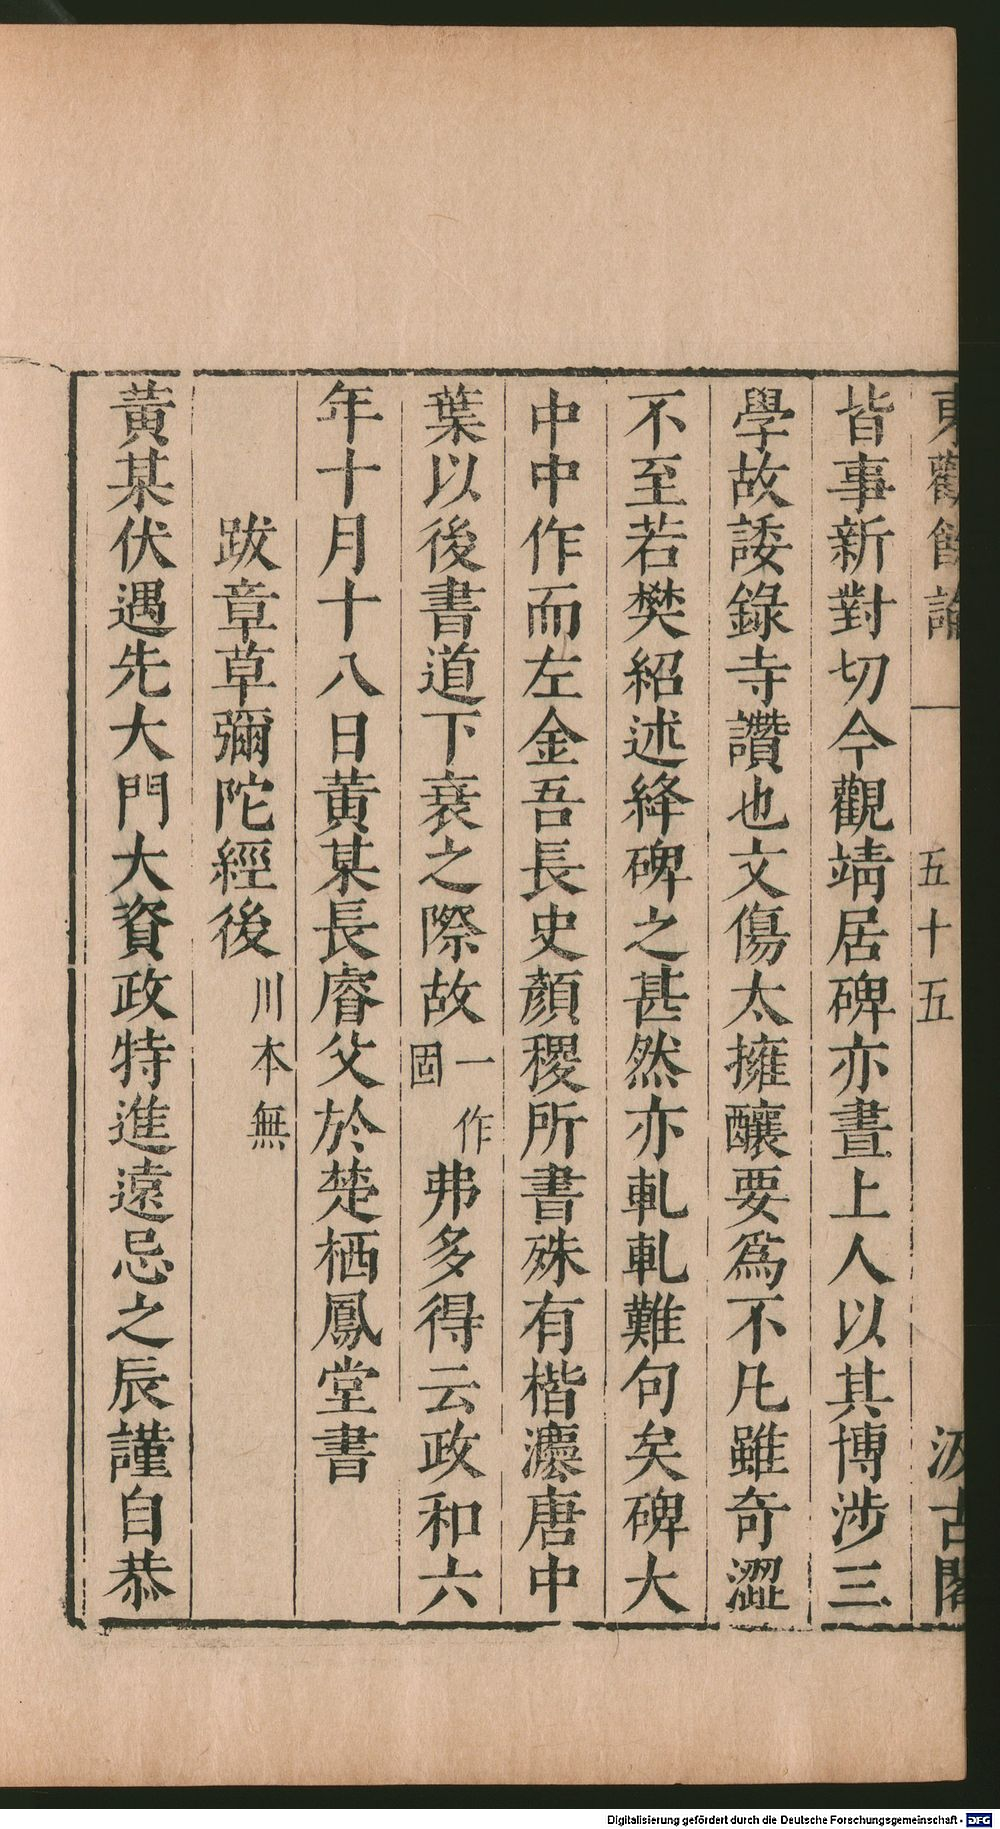 東觀餘論
五十五
汲古閣
皆事新對切今觀靖居碑亦晝上人以其博涉三
學故諉錄寺讚也文傷太擁釀要爲不凡雖奇澀
不至若樊紹述絳碑之甚然亦軋軋難句矣碑大
中中作而左金吾長史顏稷所書殊有楷灋唐中
葉以後書道下衰之際故一作固弗多得云政和六
年十月十八日黃某長睿父於楚栖鳳堂書
跋章草彌陀經後川本無
黃某伏遇先大門大資政特進遠忌之辰謹自恭
Digitalisierung gefördert durch die Deutsche Forschungsgemeinschaft - DFG